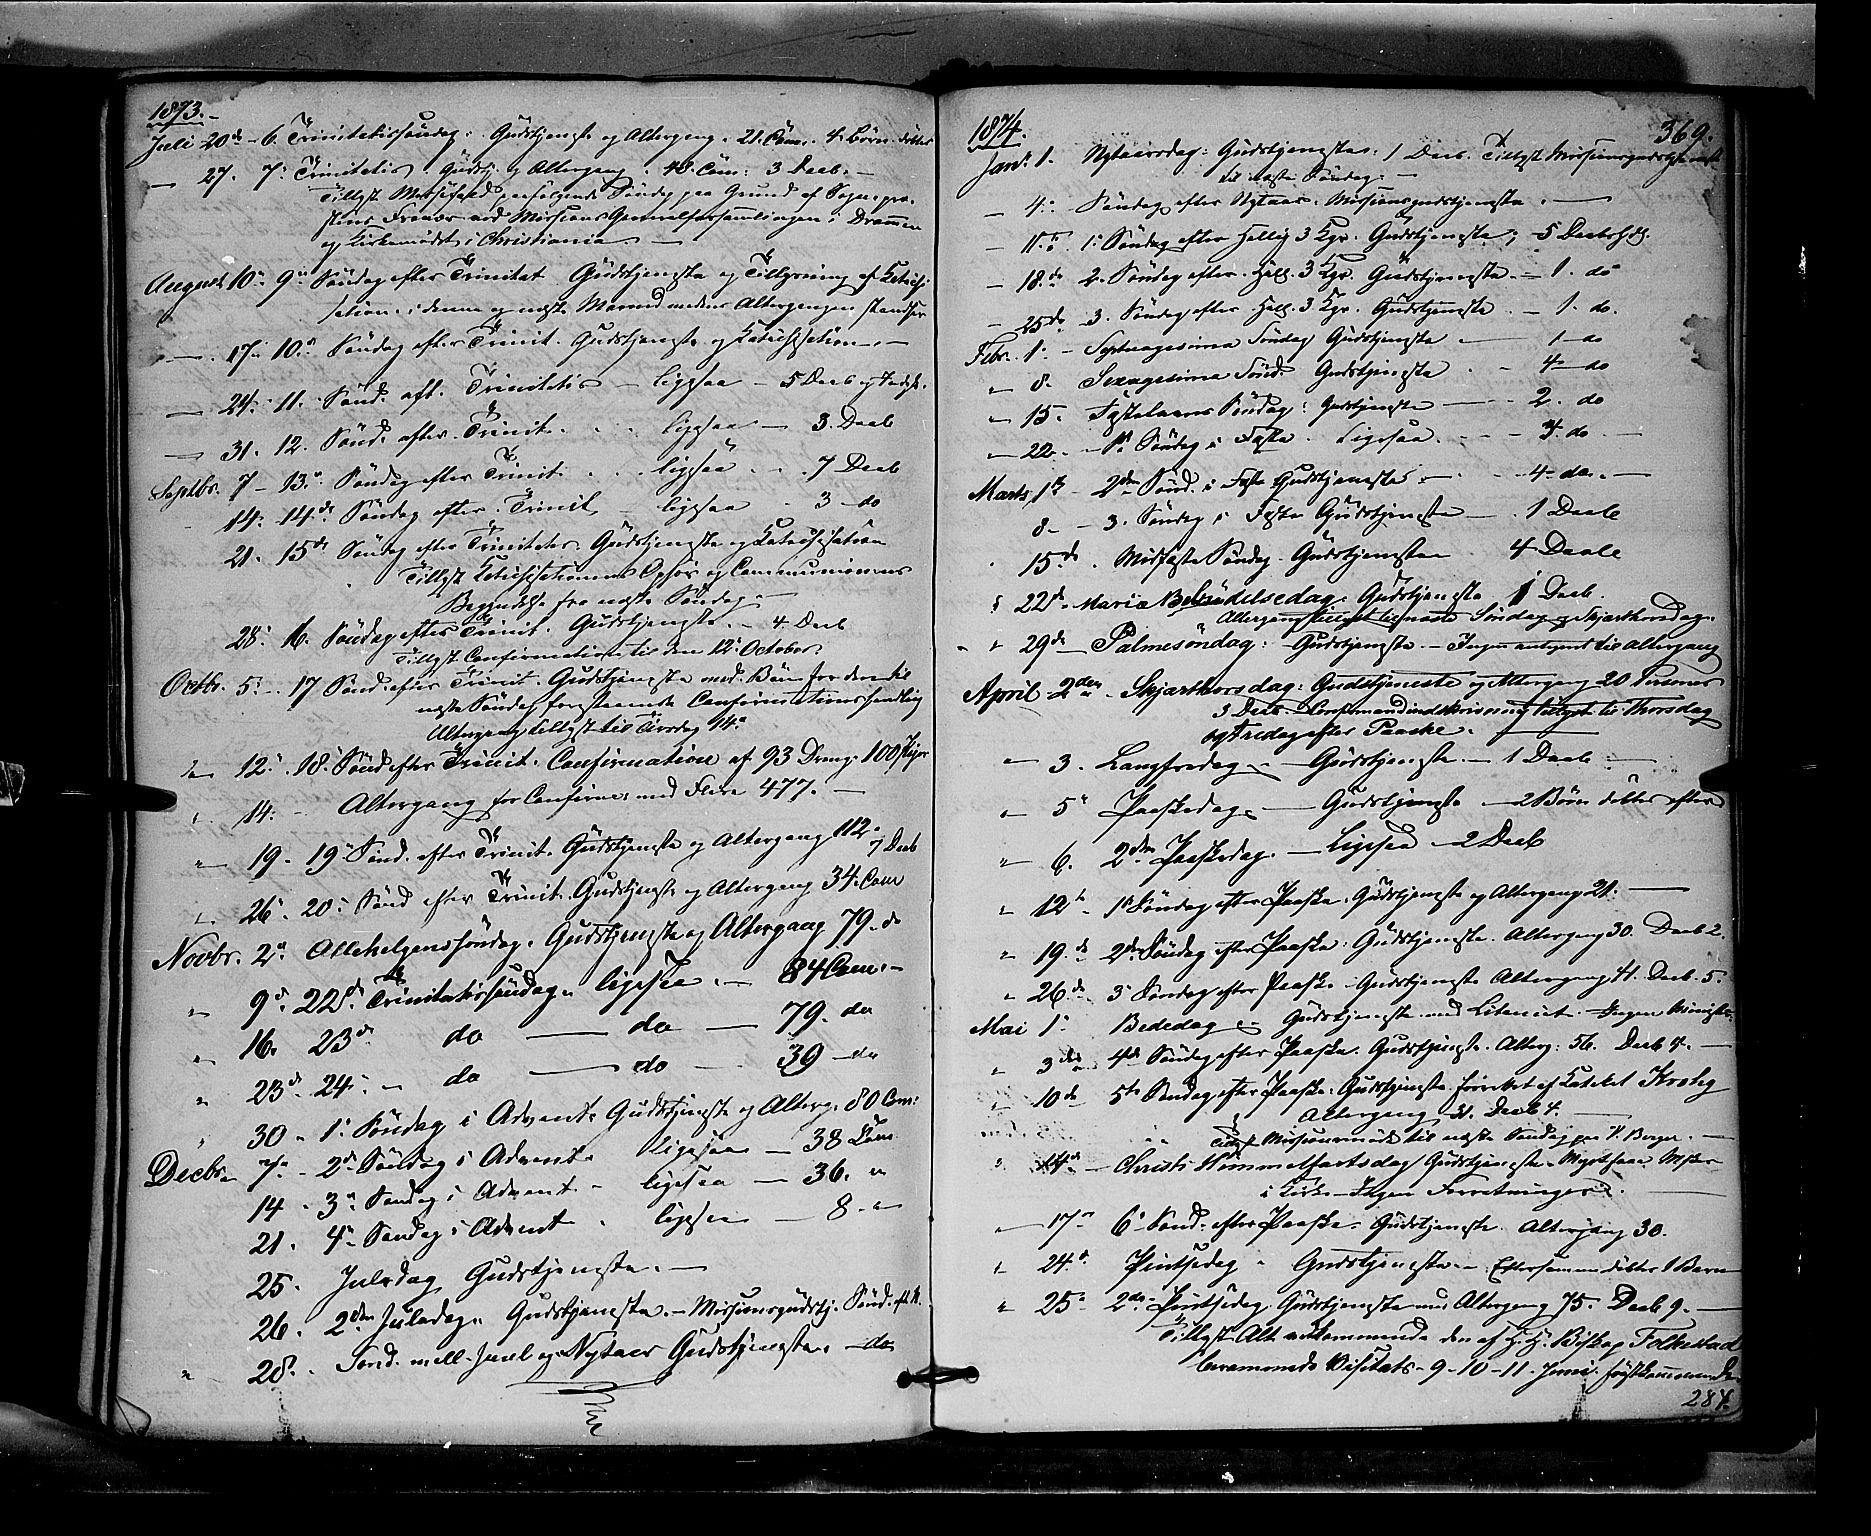 1873.
Juli 20de 6. Trinitatissøndag: Gudstjeneste og Altergang. 21 Com. 4 Børn døbte
27. 7. Trinitatis Gudstj. og Altergang. 48 Com: 3 Daab.
Tillyst Messefald paafølgende Søndag paa Grund af Sogneprestens
Fravær ved Missions Generalforsamlingen i Drammen
og Kirkemødet i Christiania.
August 10de 9de Søndag efter Trinitat. Gudstjeneste og Tillysning af Katechisation
i denne og næste Maaned medens Altergangen standser
17de 10de Søndag efter Trinit. Gudstjeneste og Katechisation.
24. 11. Sønd. eft. Trinitatis ligesaa 5 Daab
31. 12. Sønd. efter Trinit. ligesaa 3 Daab
Septbr. 7 13de Søndag efter Trinit. ligesaa 7 Daab
14. 14de Søndag efter Trinit. ligesaa 3 do
21. 15de Søndag efter Trinitatis. Gudstjeneste og Katechisation
Tillyst Katechisationens Ophør og Communionens
Begyndelse fra næste Søndag.
28. 16. Søndag efter Trinit. Gudstjeneste. 4 Daab
Tillyst Confirmation til den 12te October.
Octbr. 5. 17 Sønd. efter Trinit. Gudstjeneste med Bøn for den til
næste Søndag forestaaende Confirmationshandling
Altergang tillyst til Tirsdag 14de
12. 18. Sønd. efter Trinit. Confirmation af 93 Drenge 100 Piger
14. Altergang for Confirm. med Flere 477.
19. 19 Sønd. efter Trinit. Gudstjeneste og Altergang 112. 7 Daab
26. 20. Sønd. efter Trinit. Gudstjeneste og Altergang 34. Com
Novbr. 2. Allehelgenssøndag. Gudstjeneste og Altergang 79. do
9de 22de Trinitatissøndag. ligesaa. 84 Com.
16. 23de do do 79. do
23de 24. do do 39 do
30. 1. Søndag i Advent. Gudstjeneste og Alterg. 80 Com:
Decbr. 7. 2de Søndag i Advent. ligesaa 38 Com
14. 3de Søndag i Advent. ligesaa 36. "
21. 4de Søndag i Advent ligesaa 8. "
25. Juledag Gudstjeneste.
26. 2den Juledag. Gudstjeneste. Missionsgudstj. Sønd. eft. N.
28. Sønd. mell. Juul og Nytaar Gudstjeneste. do
1874. 369.
Jan. 1. Nytaarsdag: Gudstjeneste. 1 Daab. Tillyst Missionsgudstjeneste
til næste Søndag.
4. Søndag efter Nytaar. Missionsgudstjeneste.
11. 1. Søndag efter Hellig 3 Kgr. Gudstjeneste; 5 Daab
18. de 2. Søndag efter Hell. 3 Kgr. Gudstjeneste. 1. do
25de 3. Søndag efter Hell. 3 Kgr. Gudstjeneste. 1. do.
Febr. 1. Septuagesima Søndag Gudstjeneste 1 do
8. Sexagesima Sønd. Gudstjeneste 4 do
15. Fastelavns Søndag: Gudstjeneste 2. do
22. 1ste Søndag i Faste. Ligesaa. do
Marts 1ste 2den Sønd. i Faste Gudstjeneste. 4 do.
8. 3. Søndag i Faste Gudstjeneste 1 Daab
15de Midfaste Søndag. Gudstjeneste 4 Daab
22de Mariæ Bebudelsesdag. Gudstjeneste 1 Daab.
Altergang tillyst til næste Søndag og Skjærthorsdag.
29de Palmesøndag: Gudstjeneste. Ingen antegnet til Altergang
April 2den Skjærthorsdag: Gudstjeneste og Altergang 20 Personer
3 Daab. Confirmandindskrivning tillyst til Thorsdag
og Fredag efter Paaske.
3. Langfredag. Gudstjeneste. 1 Daab
5. Paaskedag. Gudstjeneste 2 Børn døbte efter
6. 2den Paaskedag. Ligesaa 2 Daab
12te 1ste Søndag efter Paaske. Gudstjeneste og Altergang 21.
19. de 2den Søndag efter Paaske. Gudstjeneste. Altergang 30. Daab 2.
26de 3. Søndag efter Paaske. Gudstjeneste Altergang 41. Daab. 5.
Mai 1. Bededag. Gudstjeneste med Litaniet. Ingen
3die 4de Søndag efter Paaske. Gudstjeneste. Alterg: 56. Daab 4.
10de 5te Søndag efter Paaske. Gudstjeneste forrettet af Katekel Krohg
Altergang 31. Daab 4.
Tillyst Missionsmøde til næste Søndag
14de Christi Himmelfartsdag Gudstjeneste.
i Kirke. Ingen Forretninger.
17de 6. Sønd. efter Paaske. Gudstjeneste. Altergang 30.
24de Pintsedag. Gudstjeneste. døbtes 1 Barn
25. 2den Pintsedag. Gudstjeneste med Altergang 75. Daab 9.
Tillyst den af H. H. Biskop Folkestad
berammede Visitats 9-10-11. Juni. førstkommende.
284.